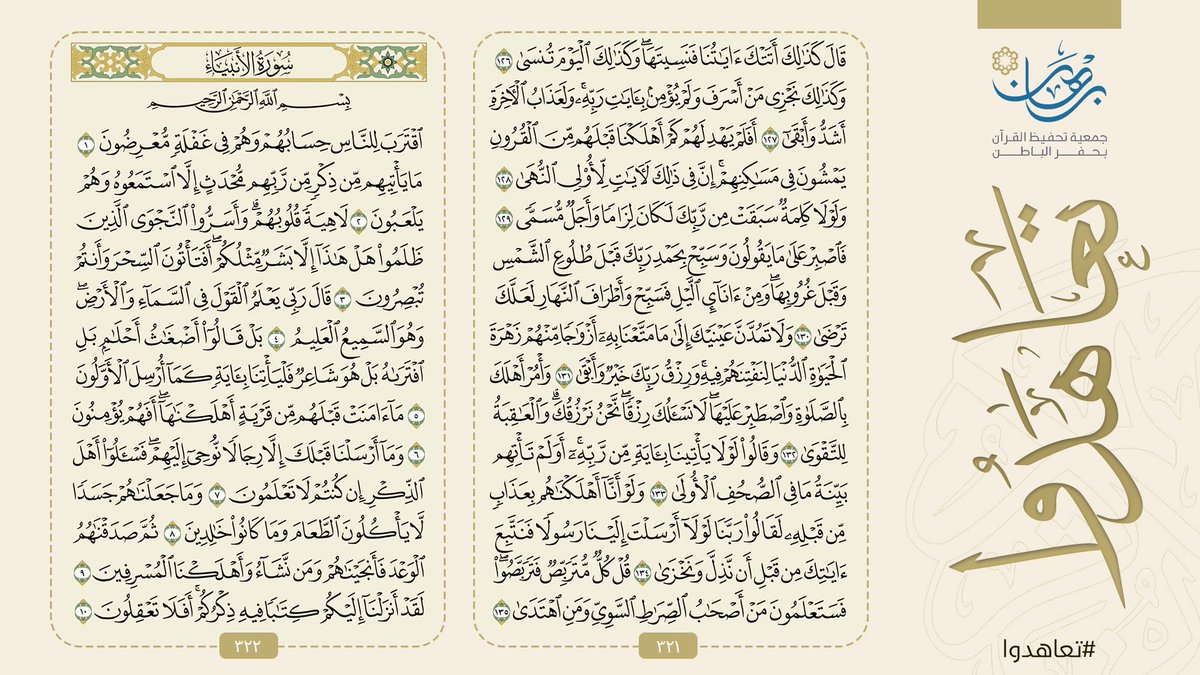 برهان
جمعية تحفيظ القرآن
بحفر الباطن
تعاهدوا
#تعاهدوا
قَالَ كَذَٰلِكَ أَتَتْكَ ءَايَٰتُنَا فَنَسِيتَهَاۖ وَكَذَٰلِكَ ٱلْيَوْمَ تُنسَىٰ ١٢٦
وَكَذَٰلِكَ نَجْزِى مَنْ أَسْرَفَ وَلَمْ يُؤْمِنۢ بِـَٔايَٰتِ رَبِّهِۦۚ وَلَعَذَابُ ٱلْءَاخِرَةِ
أَشَدُّ وَأَبْقَىٰٓ ١٢٧ أَفَلَمْ يَهْدِ لَهُمْ كَمْ أَهْلَكْنَا قَبْلَهُم مِّنَ ٱلْقُرُونِ
يَمْشُونَ فِى مَسَٰكِنِهِمْۗ إِنَّ فِى ذَٰلِكَ لَءَايَٰتٍ لِّأُو۟لِى ٱلنُّهَىٰ ١٢٨
وَلَوْلَا كَلِمَةٌ سَبَقَتْ مِن رَّبِّكَ لَكَانَ لِزَامًا وَأَجَلٌ مُّسَمًّى ١٢٩
فَٱصْبِرْ عَلَىٰ مَا يَقُولُونَ وَسَبِّحْ بِحَمْدِ رَبِّكَ قَبْلَ طُلُوعِ ٱلشَّمْسِ
وَقَبْلَ غُرُوبِهَاۖ وَمِنْ ءَانَآئِ ٱلَّيْلِ فَسَبِّحْ وَأَطْرَافَ ٱلنَّهَارِ لَعَلَّكَ
تَرْضَىٰ ١٣٠ وَلَا تَمُدَّنَّ عَيْنَيْكَ إِلَىٰ مَا مَتَّعْنَا بِهِۦٓ أَزْوَٰجًا مِّنْهُمْ زَهْرَةَ
ٱلْحَيَوٰةِ ٱلدُّنْيَا لِنَفْتِنَهُمْ فِيهِۚ وَرِزْقُ رَبِّكَ خَيْرٌ وَأَبْقَىٰ ١٣١ وَأْمُرْ أَهْلَكَ
بِٱلصَّلَوٰةِ وَٱصْطَبِرْ عَلَيْهَاۖ لَا نَسْـَٔلُكَ رِزْقًاۖ نَّحْنُ نَرْزُقُكَۗ وَٱلْعَٰقِبَةُ
لِلتَّقْوَىٰ ١٣٢ وَقَالُوا۟ لَوْلَا يَأْتِينَا بِـَٔايَةٍ مِّن رَّبِّهِۦٓۚ أَوَلَمْ تَأْتِهِم
بَيِّنَةُ مَا فِى ٱلصُّحُفِ ٱلْأُولَىٰ ١٣٣ وَلَوْ أَنَّآ أَهْلَكْنَٰهُم بِعَذَابٍ
مِّن قَبْلِهِۦ لَقَالُوا۟ رَبَّنَا لَوْلَآ أَرْسَلْتَ إِلَيْنَا رَسُولًا فَنَتَّبِعَ
ءَايَٰتِكَ مِن قَبْلِ أَن نَّذِلَّ وَنَخْزَىٰ ١٣٤ قُلْ كُلٌّ مُّتَرَبِّصٌ فَتَرَبَّصُوا۟ۖ
فَسَتَعْلَمُونَ مَنْ أَصْحَٰبُ ٱلصِّرَٰطِ ٱلسَّوِىِّ وَمَنِ ٱهْتَدَىٰ ١٣٥
٣٢١
سُورَةُ الأَنبيَاءِ
بِسْمِ ٱللَّهِ ٱلرَّحْمَٰنِ ٱلرَّحِيمِ
ٱقْتَرَبَ لِلنَّاسِ حِسَابُهُمْ وَهُمْ فِى غَفْلَةٍ مُّعْرِضُونَ ١
مَا يَأْتِيهِم مِّن ذِكْرٍ مِّن رَّبِّهِم مُّحْدَثٍ إِلَّا ٱسْتَمَعُوهُ وَهُمْ
يَلْعَبُونَ ٢ لَاهِيَةً قُلُوبُهُمْۗ وَأَسَرُّوا۟ ٱلنَّجْوَى ٱلَّذِينَ
ظَلَمُوا۟ هَلْ هَٰذَآ إِلَّا بَشَرٌ مِّثْلُكُمْۖ أَفَتَأْتُونَ ٱلسِّحْرَ وَأَنتُمْ
تُبْصِرُونَ ٣ قَالَ رَبِّى يَعْلَمُ ٱلْقَوْلَ فِى ٱلسَّمَآءِ وَٱلْأَرْضِۖ
وَهُوَ ٱلسَّمِيعُ ٱلْعَلِيمُ ٤ بَلْ قَالُوٓا۟ أَضْغَٰثُ أَحْلَٰمٍۭ بَلِ
ٱفْتَرَىٰهُ بَلْ هُوَ شَاعِرٌ فَلْيَأْتِنَا بِـَٔايَةٍ كَمَآ أُرْسِلَ ٱلْأَوَّلُونَ
٥ مَآ ءَامَنَتْ قَبْلَهُم مِّن قَرْيَةٍ أَهْلَكْنَٰهَآۖ أَفَهُمْ يُؤْمِنُونَ
٦ وَمَآ أَرْسَلْنَا قَبْلَكَ إِلَّا رِجَالًا نُّوحِىٓ إِلَيْهِمْۖ فَسْـَٔلُوٓا۟ أَهْلَ
ٱلذِّكْرِ إِن كُنتُمْ لَا تَعْلَمُونَ ٧ وَمَا جَعَلْنَٰهُمْ جَسَدًا
لَّا يَأْكُلُونَ ٱلطَّعَامَ وَمَا كَانُوا۟ خَٰلِدِينَ ٨ ثُمَّ صَدَقْنَٰهُمُ
ٱلْوَعْدَ فَأَنجَيْنَٰهُمْ وَمَن نَّشَآءُ وَأَهْلَكْنَا ٱلْمُسْرِفِينَ ٩
لَقَدْ أَنزَلْنَآ إِلَيْكُمْ كِتَٰبًا فِيهِ ذِكْرُكُمْۖ أَفَلَا تَعْقِلُونَ ١٠
٣٢٢